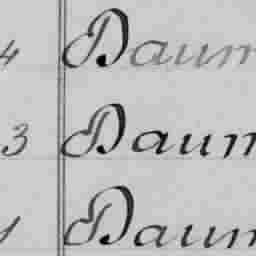 4 Daum
3 Daum
Daum